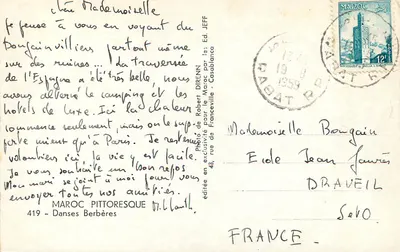 Chère Mademoiselle
je pense à vous en voyant du
Bougainvilliers partout même
sur des ruines... La traversée
de l'Espagne a été très belle, nous
avons alterné le camping et les
hôtels de luxe. Ici la chaleur
commence seulement, mais on le supporte
mieux qu'à Paris. Je resterais
volontiers ici, la vie y est facile
Je vous souhaite un bon repos
Mon mari se joint à moi pour vous
envoyer toutes nos amitiés.
MAROC PITTORESQUE
419 - Danses Berbères
Photo de Robert DRIENCE
éditée en exclusivité pour le Maroc par la: Ed. JEFF
48, rue de Franceville - Casablanca
MAROC
12F
RABAT
19
1959
Mademoiselle Bougain
Ecole Jean Jaurès
DRAVEIL
S et O
FRANCE